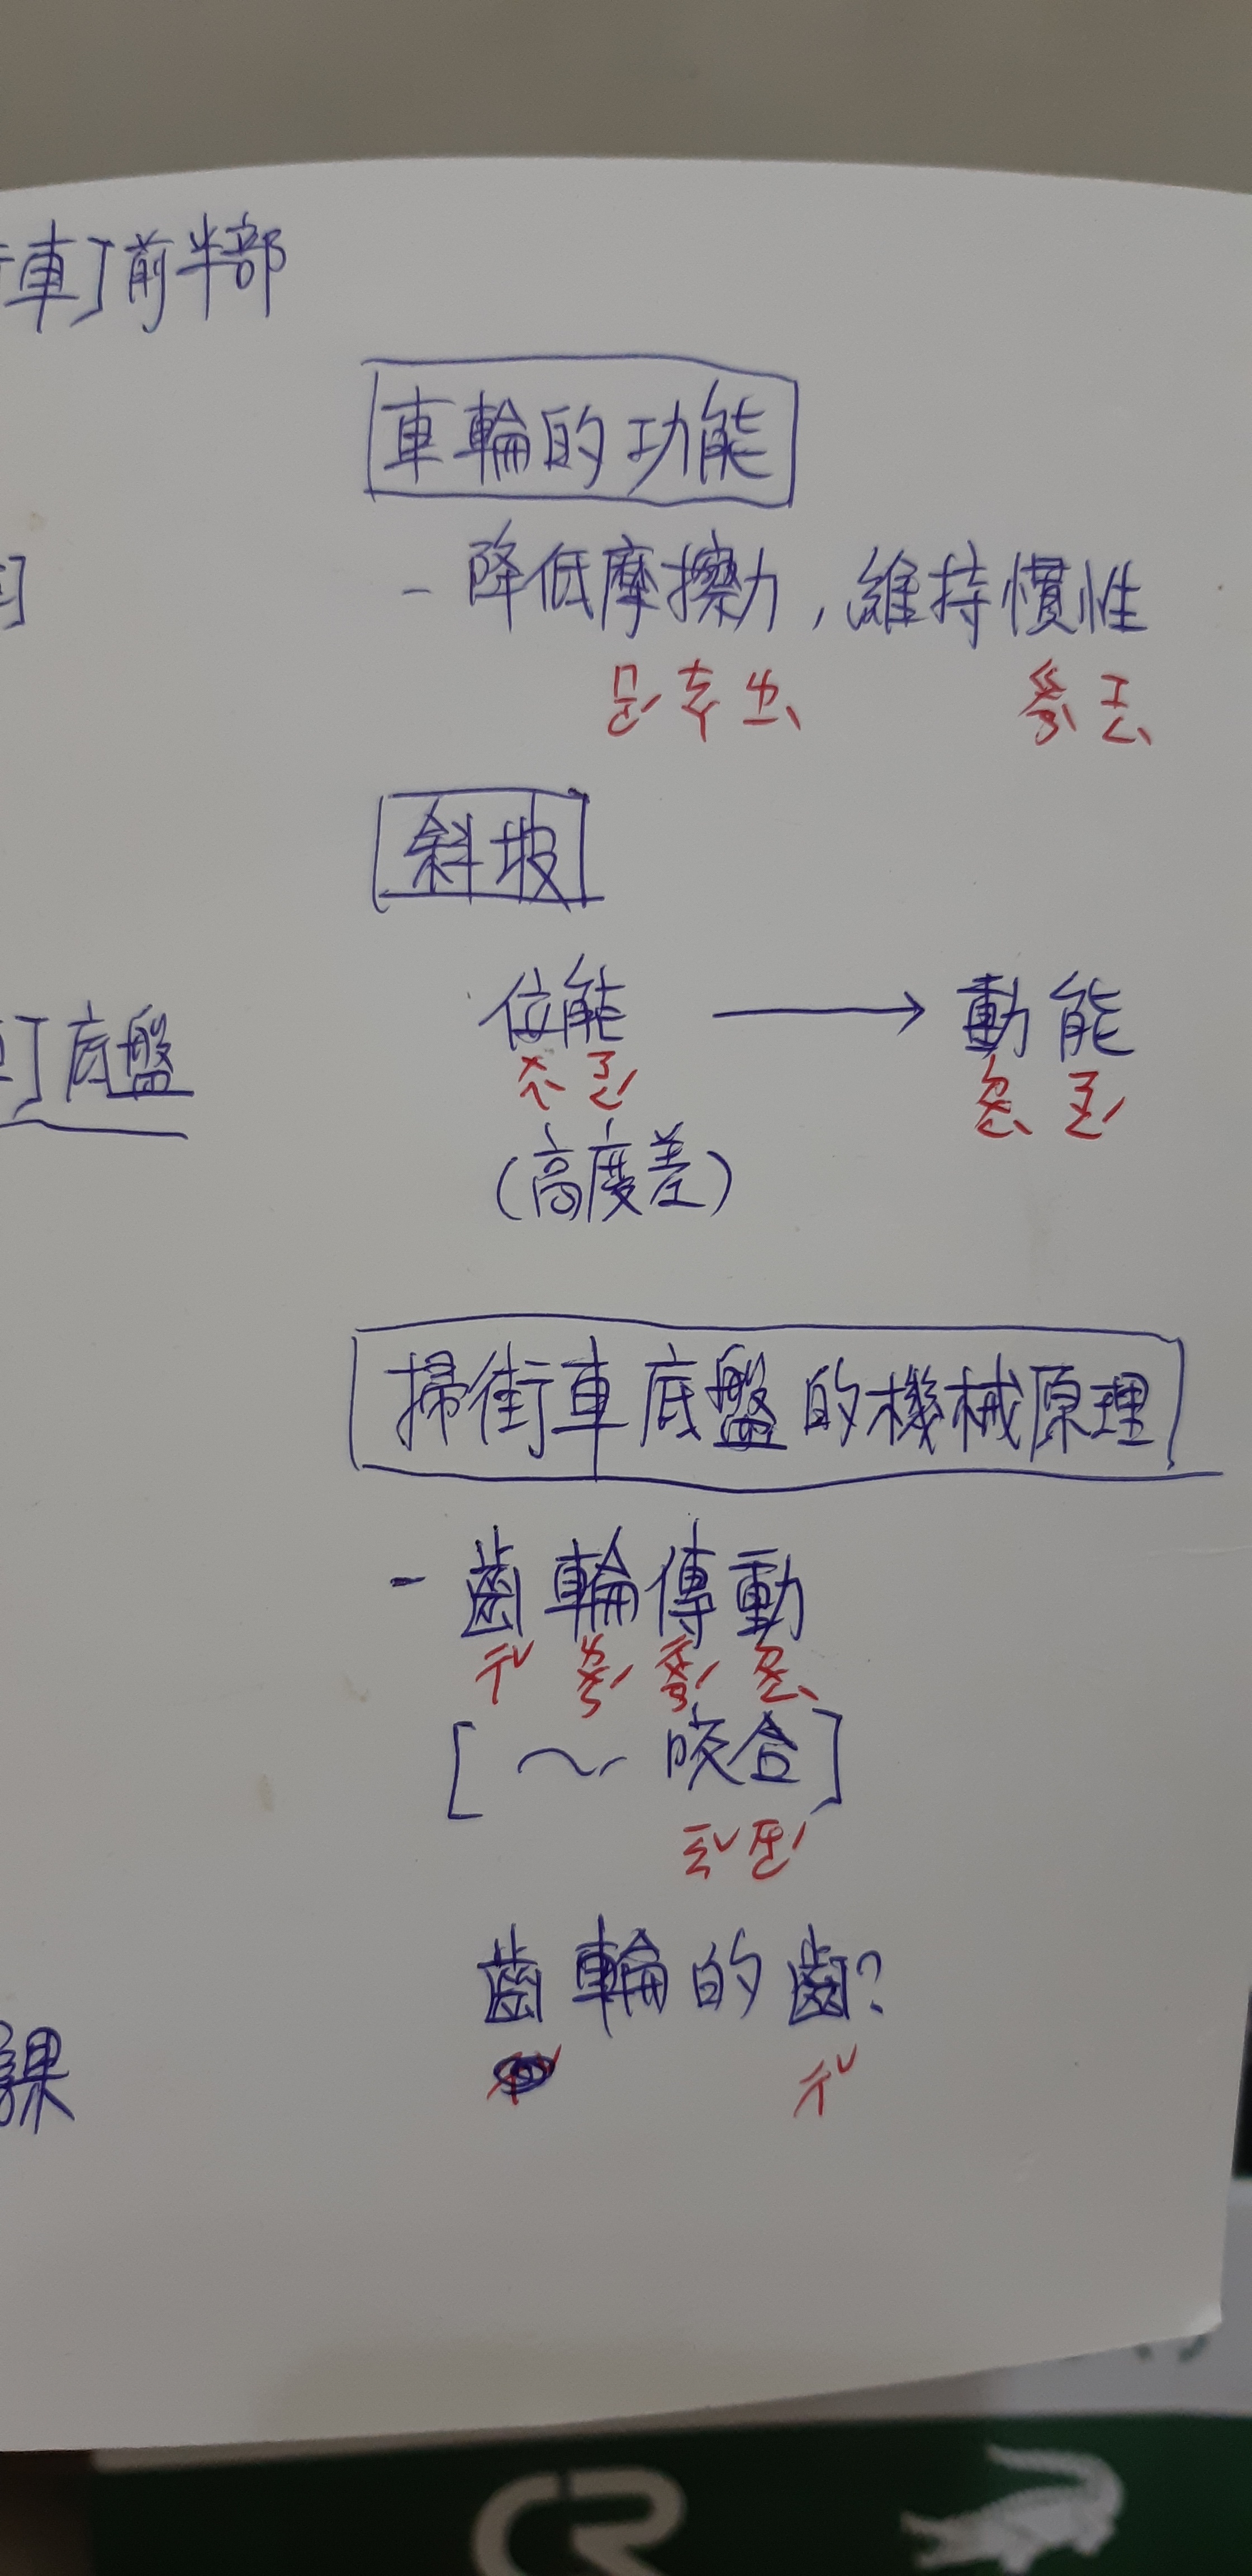 車」前半部
車輪的功能
- 降低摩擦力，維持慣性
ㄇㄛˊ ㄘㄚ ㄌㄧˋ ㄍㄨㄢˋ ㄒㄧㄥˋ
斜坡
位能 → 動能
ㄨㄟˋ ㄋㄥˊ ㄉㄨㄥˋ ㄋㄥˊ
」底盤
(高度差)
掃街車底盤的機械原理
- 齒輪傳動
ㄔˇ ㄌㄨㄣˊ ㄔㄨㄢˊ ㄉㄨㄥˋ
[ ～ 咬合]
ㄧㄠˇ ㄏㄜˊ
齒輪的齒?
ㄔˇ
課
CR